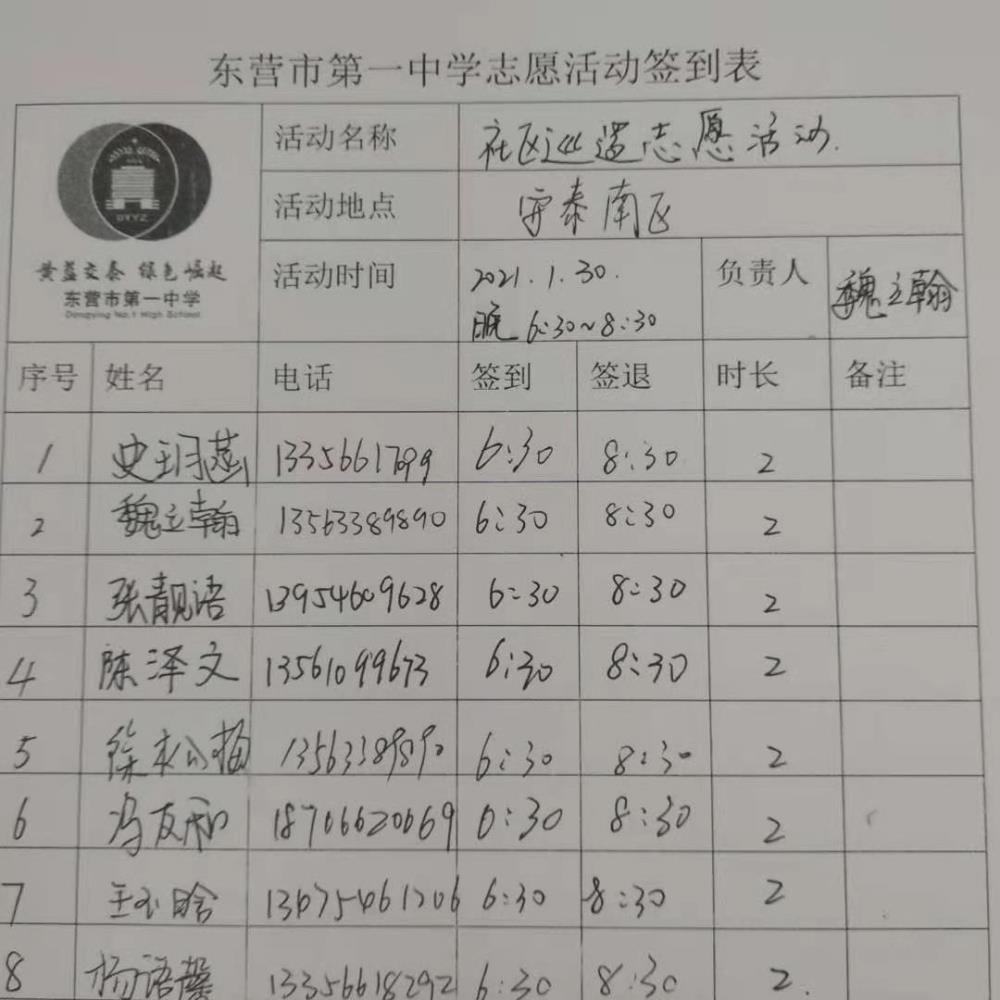 东营市第一中学志愿活动签到表
活动名称 社区巡逻志愿活动.
活动地点 安泰南区
活动时间 2021.1.30.
晚 6:30~8:30
负责人 魏立翰
DYYZ
黄蓝交泰 绿色崛起
东营市第一中学
Dongying No.1 High School
序号 姓名 电话 签到 签退 时长 备注
1 史玥菡 6:30 8:30 2
2 魏立翰 13563389890 6:30 8:30 2
3 张靓语 13954609628 6:30 8:30 2
4 陈泽文 13561099673 6:30 8:30 2
5 徐 13563389890 6:30 8:30 2
6 冯友和 18706620069 6:30 8:30 2
7 王 晗 13475461206 6:30 8:30 2
8 杨语馨 13356618292 6:30 8:30 2.